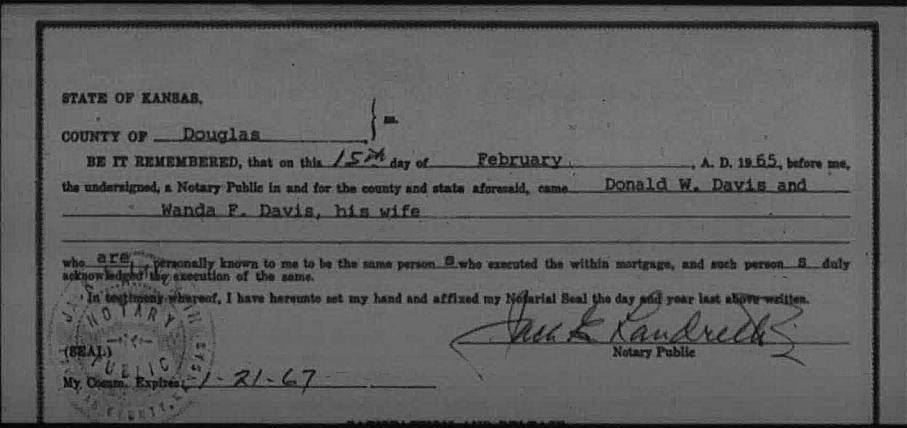 STATE OF KANSAS,
COUNTY OF Douglas } ss.
BE IT REMEMBERED, that on this 15th day of February, A. D. 1965, before me,
the undersigned, a Notary Public in and for the county and state aforesaid, came Donald W. Davis and
Wanda F. Davis, his wife
who are personally known to me to be the same person s who executed the within mortgage, and such person s duly
acknowledged the execution of the same.
In testimony whereof, I have hereunto set my hand and affixed my Notarial Seal the day and year last above written.
NOTARY
(SEAL)
Notary Public
PUBLIC
My Comm. Expires 1-21-67